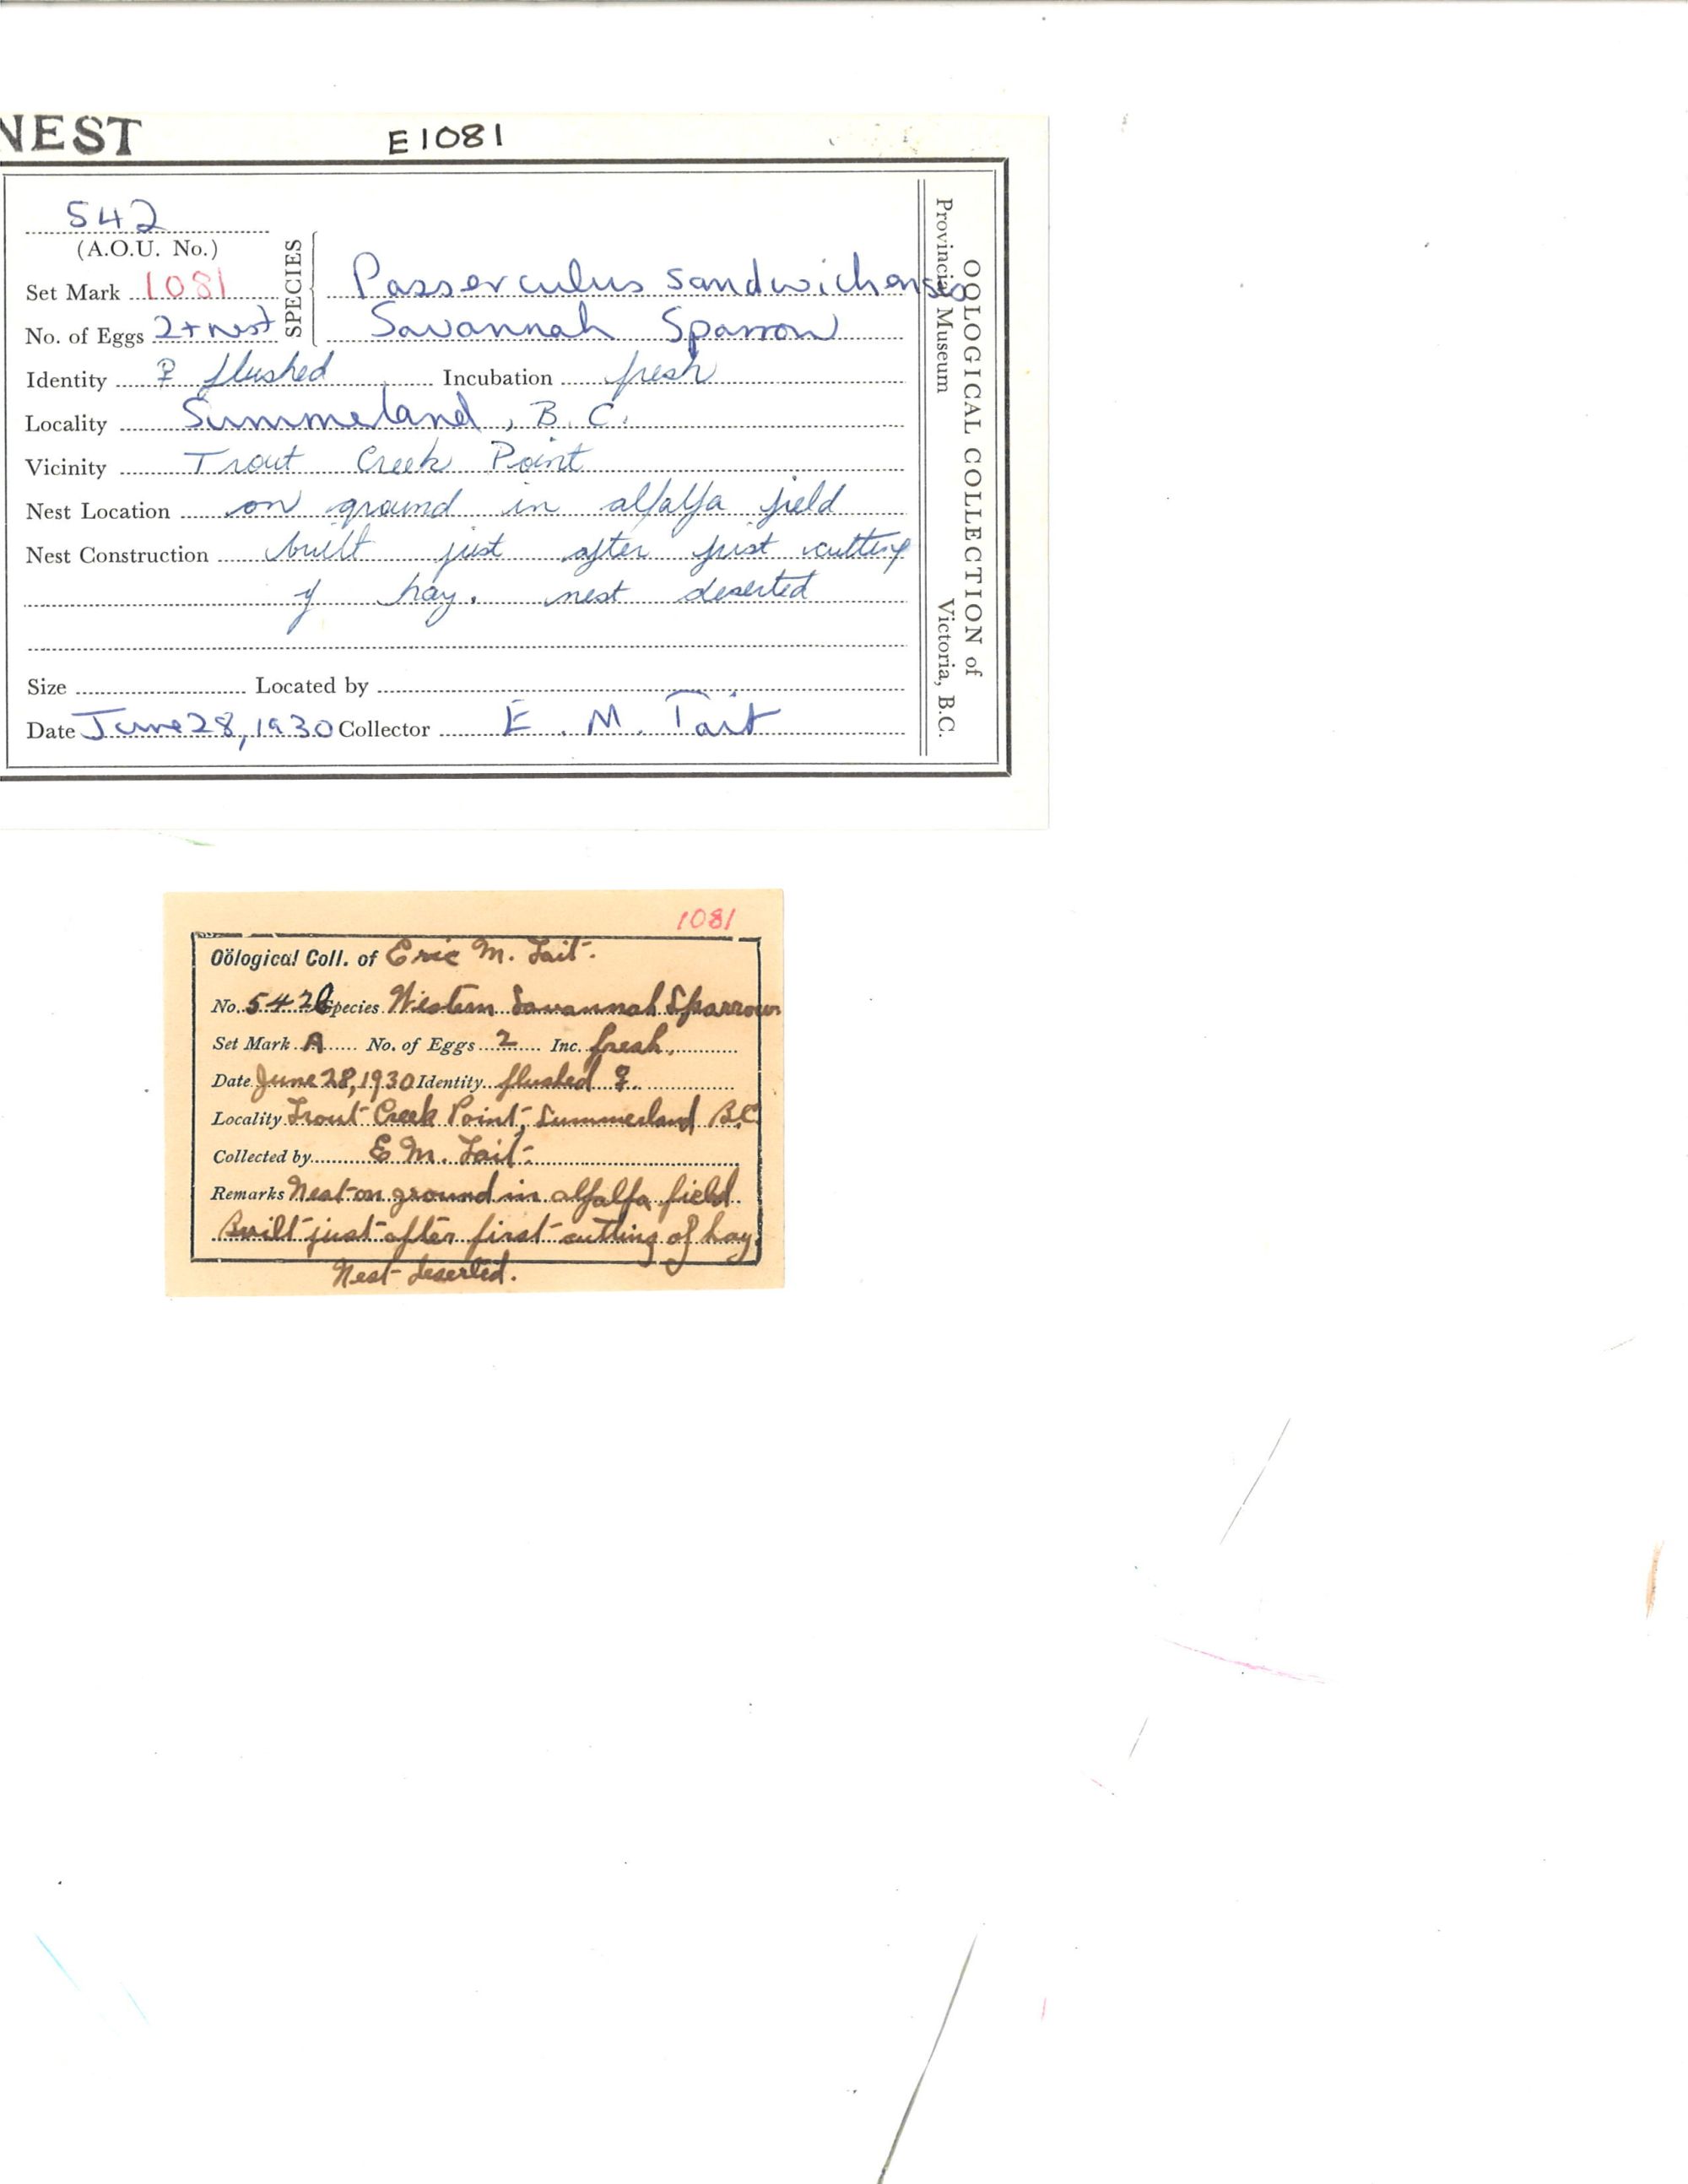 NEST E1081
542
(A.O.U. No.)
Set Mark 1081
No. of Eggs 2 + nest
SPECIES
Passerculus sandwichensis
Savannah Sparrow
Identity ♀ flushed Incubation fresh
Locality Summerland, B.C.
Vicinity Trout Creek Point
Nest Location on ground in alfalfa field
Nest Construction built just after first cutting
of hay. nest deserted
Size Located by
Date June 28, 1930 Collector E. M. Tait
OOLOGICAL COLLECTION of
Provincial Museum Victoria, B.C.
1081
Oölogical Coll. of Eric M. Tait.
No. 542b Species Western Savannah Sparrow
Set Mark A No. of Eggs 2 Inc. fresh.
Date June 28, 1930 Identity flushed ♀
Locality Trout Creek Point, Summerland B.C.
Collected by E M. Tait.
Remarks Nest on ground in alfalfa field.
Built just after first cutting of hay.
Nest deserted.